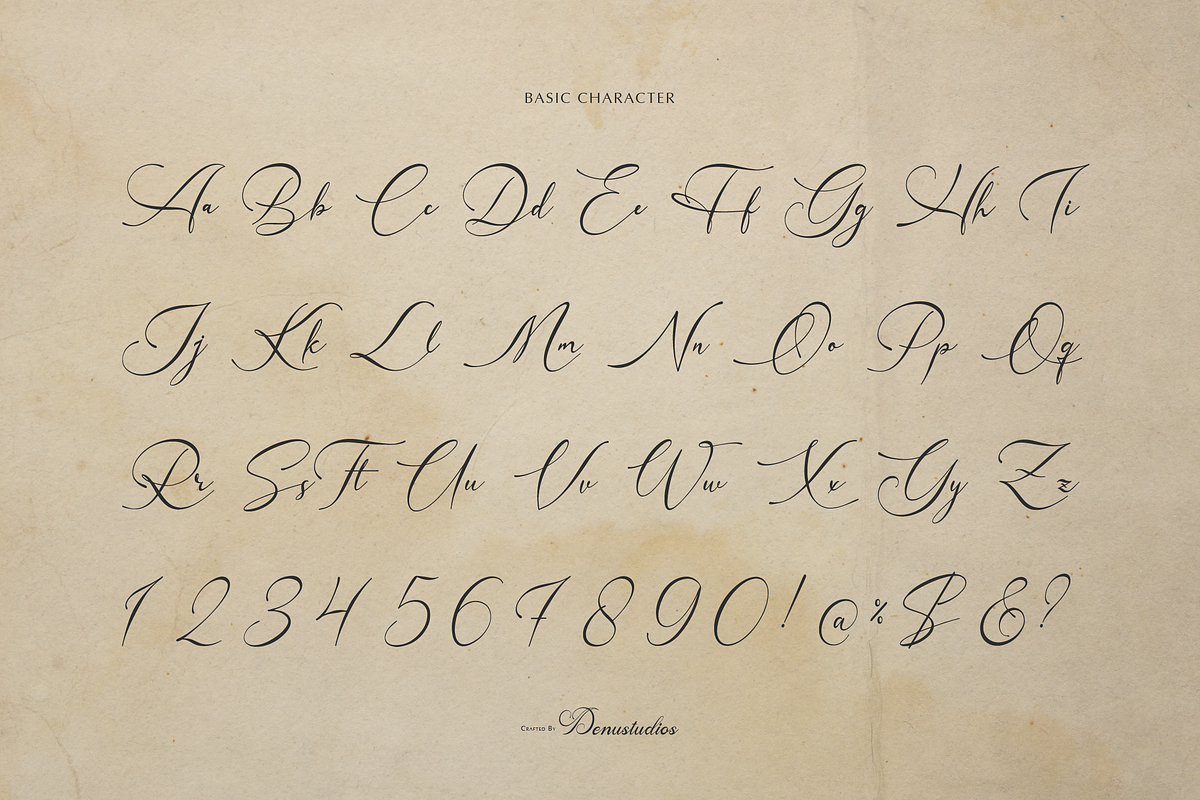 BASIC CHARACTER
Aa Bb Cc Dd Ee Ff Gg Hh Ii
Jj Kk Ll Mm Nn Oo Pp Qq
Rr Ss Tt Uu Vv Ww Xx Yy Zz
1 2 3 4 5 6 7 8 9 0 ! @ % $ & ?
Crafted By Denustudios